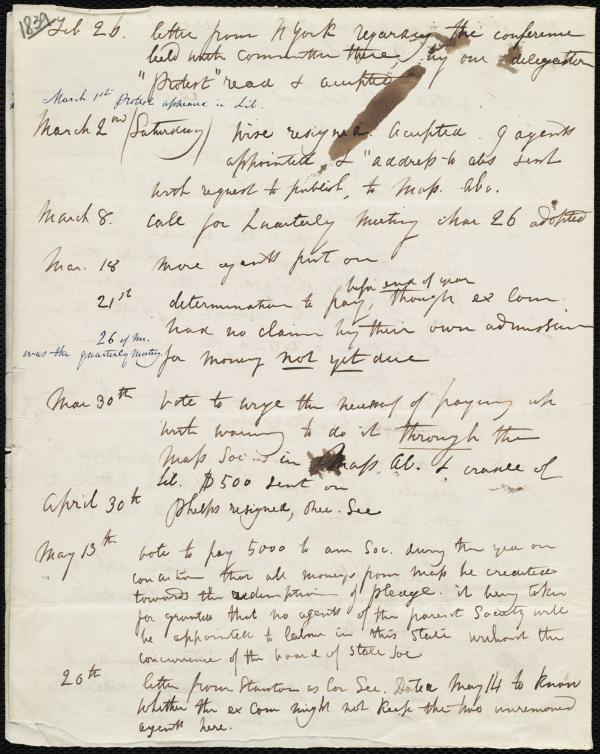 1839
Feb 26. letter from N York regarding the conference
held with committee there, by our delegation
"Protest" read & accepted
March 1st Protest appeared in Lib.
March 2nd (Saturday) Wise resigned. Accepted. 9 agents
appointed & "address to abs sent
with request to publish, to Mass. Abo.
March 8. Call for Quarterly Meeting Mar 26 adopted
Mar. 18 more agents put on
before end of year
21st determination to pay, though ex Com.
had no claim by their own admission
26 of Mr.
was the quarterly meeting.
for money not yet due
Mar 30th vote to urge the necessity of paying up
with warning to do it through the
Mass Soc in Mass. Ab. & cradle of
Lib. $500 sent on
April 30th Phelps resigned, Rec. Sec
May 13th vote to pay 5000 to am Soc. during the year on
condition that all moneys from Mass be credited
towards the redemption of pledge. it being taken
for granted that no agents of the parent Society will
be appointed to labour in this State without the
concurrence of the board of State Soc
20th letter from Stanton as Cor Sec. Dated May 14 to know
whether the ex Com might not keep the two unremoved
agents here.